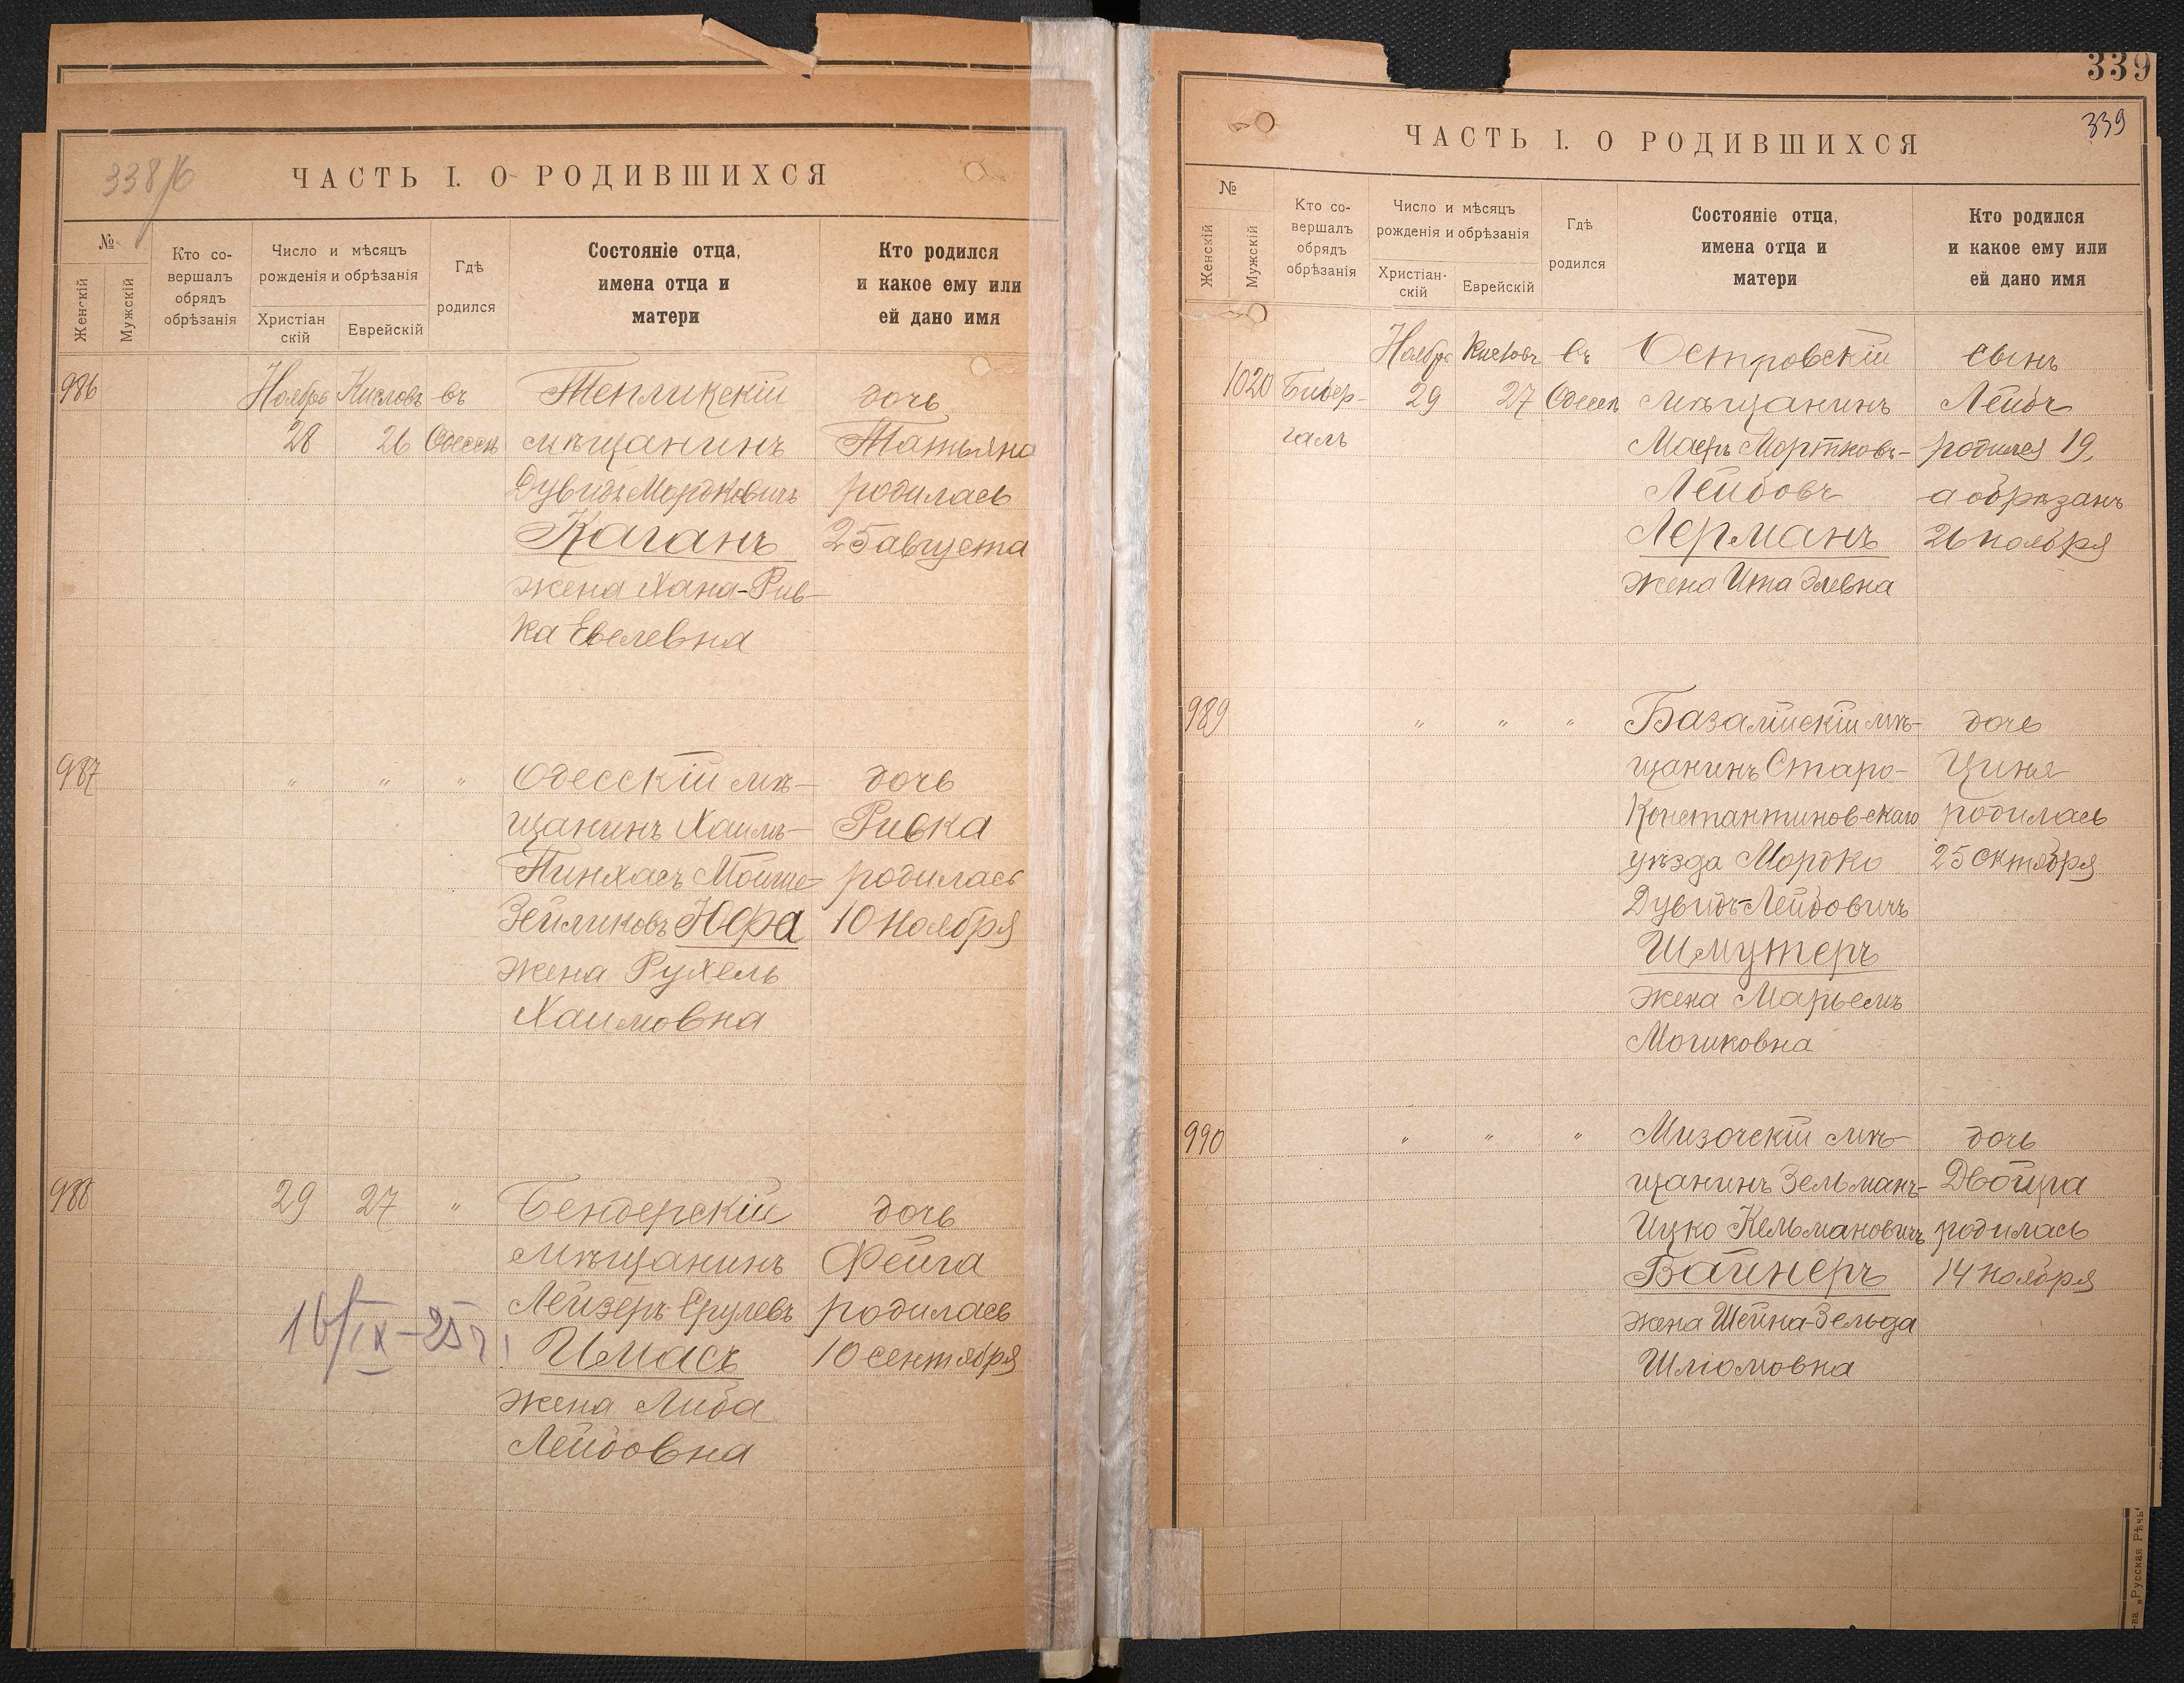 338/б
ЧАСТЬ I. О РОДИВШИХСЯ
№
Женскій
Мужскій
Кто со-
вершалъ
обрядъ
обрѣзанія
Число и мѣсяцъ
рожденія и обрѣзанія
Христіан
скій
Еврейскій
Гдѣ
родился
Состояніе отца,
имена отца и
матери
Кто родился
и какое ему или
ей дано имя
986 Ноябрь Кислевъ въ Тепликскій дочь
28 26 Одессѣ мѣщанинъ Татьяна
Дувидъ Мордковичъ родилась
Каганъ 25 августа
жена Хана-Рив-
ка Евелевна
987 " " " Одесскій мѣ- дочь
щанинъ Хаимъ- Ривка
Пинхасъ Мойше- родилась
Зейликовъ Юфа 10 ноября
жена Рухель
Хаимовна
988 29 27 " Бендерскій дочь
мѣщанинъ Фейга
Лейзеръ Срулевъ родилась
16/IX-25 г. Имасъ 10 сентября
жена Либа
Лейбовна
339
339
ЧАСТЬ I. О РОДИВШИХСЯ
№
Женскій
Мужскій
Кто со-
вершалъ
обрядъ
обрѣзанія
Число и мѣсяцъ
рожденія и обрѣзанія
Христіан-
скій
Еврейскій
Гдѣ
родился
Состояніе отца,
имена отца и
матери
Кто родился
и какое ему или
ей дано имя
Ноябрь Кислевъ въ Островскій сынъ
1020 Бибер- 29 27 Одессѣ мѣщанинъ Лейбъ
галъ Мортковъ- родился 19,
Лейбовъ а обрѣзанъ
Лерманъ 26 ноября
жена Ита Элевна
989 " " " Базалійскій мѣ- дочь
щанинъ Старо- Циня
Константиновскаго родилась
уѣзда Мордко 25 октября
Дувидъ-Лейбовичъ
Шмутеръ
жена Марьемъ
Мошковна
990 " " " Мизочскій мѣ- дочь
щанинъ Зельманъ- Двойра
Ицко Кельмановичъ родилась
Вайнеръ 14 ноября
жена Шейна-Зельда
Шліомовна
-ва „Русская Рѣчь"